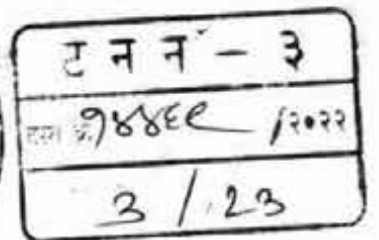 ट न न - ३
दस्त क्र. १४४६९ /२०२२
3 / 23